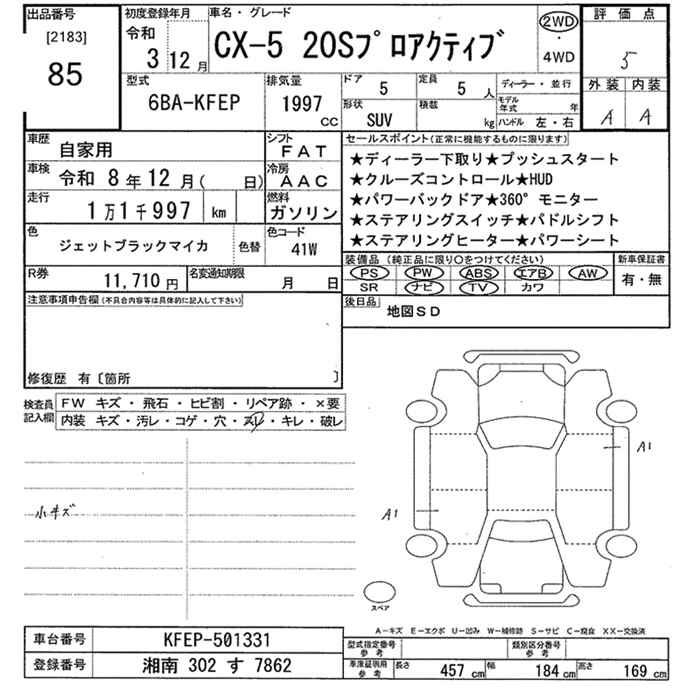 出品番号 初度登録年月 車名・グレード 評価点
[2183] 令和 2WD
85 3 12月 CX-5 20Sプロアクティブ 4WD 5
型式 排気量 ドア 5 定員 5人 ディーラー・並行 外装 内装
6BA-KFEP 1997cc 形状 SUV 積載 kg モデル年式 年 A A
ハンドル 左・右
車歴 自家用 シフト FAT セールスポイント(正常に機能するものに限ります)
車検 令和 8年12月( 日) 冷房 AAC ★ディーラー下取り★プッシュスタート
★クルーズコントロール★HUD
走行 1万1千997 km 燃料 ガソリン ★パワーバックドア★360°モニター
★ステアリングスイッチ★パドルシフト
色 ジェットブラックマイカ 色替 色コード 41W ★ステアリングヒーター★パワーシート
R券 11,710円 名変通知期限 月 日 装備品 (純正品に限り〇をつけてください) 新車保証書
PS PW ABS エアB AW 有・無
SR ナビ TV カワ
注意事項申告欄(不具合内容等は具体的に記入して下さい) 後日品 地図SD
修復歴 有〔箇所 〕
検査員記入欄 FW キズ・飛石・ヒビ割・リペア跡・×要
内装 キズ・汚レ・コゲ・穴・スレ・キレ・破レ
A1
小キズ A1
スペア
A-キズ E-エクボ U-凹み W-補修跡 S-サビ C-腐食 XX-交換済
車台番号 KFEP-501331 型式指定番号 参考 類別区分番号 参考
登録番号 湘南 302 す 7862 車庫証明用 参考 長さ 457cm 幅 184cm 高さ 169cm